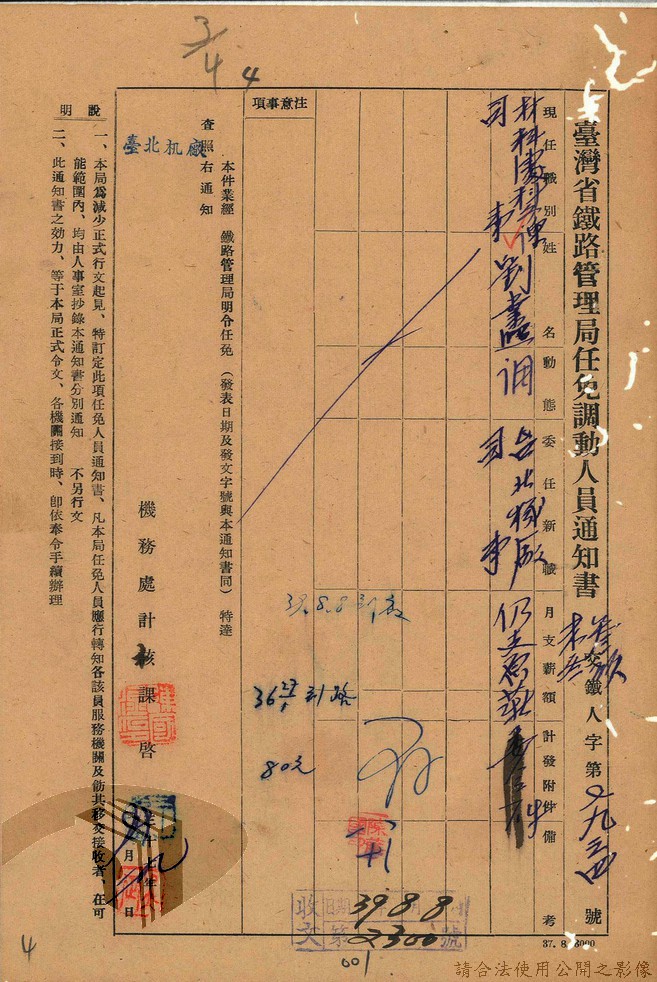 3/4
4
臺灣省鐵路管理局任免調動人員通知書
交鐵人字第 九三四 號
現任職別
姓名
動態
委任新職
月支薪額
計發附件
備考
材料處
司事
劉
調
台北機廠
司事
仍支原薪
37.8.3000
39.8.8到廠
36 到路
80元
注意事項
本件業經 鐵路管理局明令任免 (發表日期及發文字號與本通知書同) 特達
查照
右通知
臺北机廠
機務處計核課 啓
月 日
說明
一、本局爲減少正式行文起見、特訂定此項任免人員通知書、凡本局任免人員應行轉知各該員服務機關及飭其移交接收者、在可
能範圍內、均由人事室抄錄本通知書分別通知 不另行文
二、此通知書之効力、等于本局正式令文、各機關接到時、卽依奉令手續辦理
收文
日期 39 8 8
第 2300 號
001
4
請合法使用公開之影像